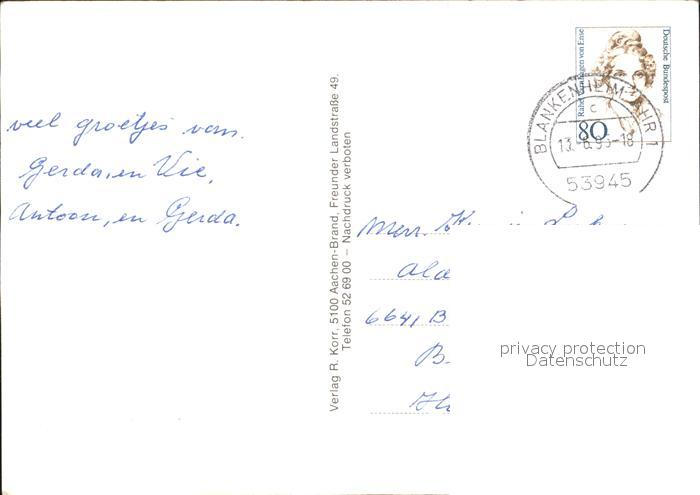 veel groetjes van.
Gerda, en Vie,
Antoon, en Gerda.
Verlag R. Korr, 5100 Aachen-Brand, Freunder Landstraße 49.
Telefon 52 69 00 – Nachdruck verboten
Deutsche Bundespost
Rahel Varnhagen von Ense
80
BLANKENHEIM, AHR 1
c
13.-6.95-18
53945
Mevr.
6641 B
B.
privacy protection
Datenschutz